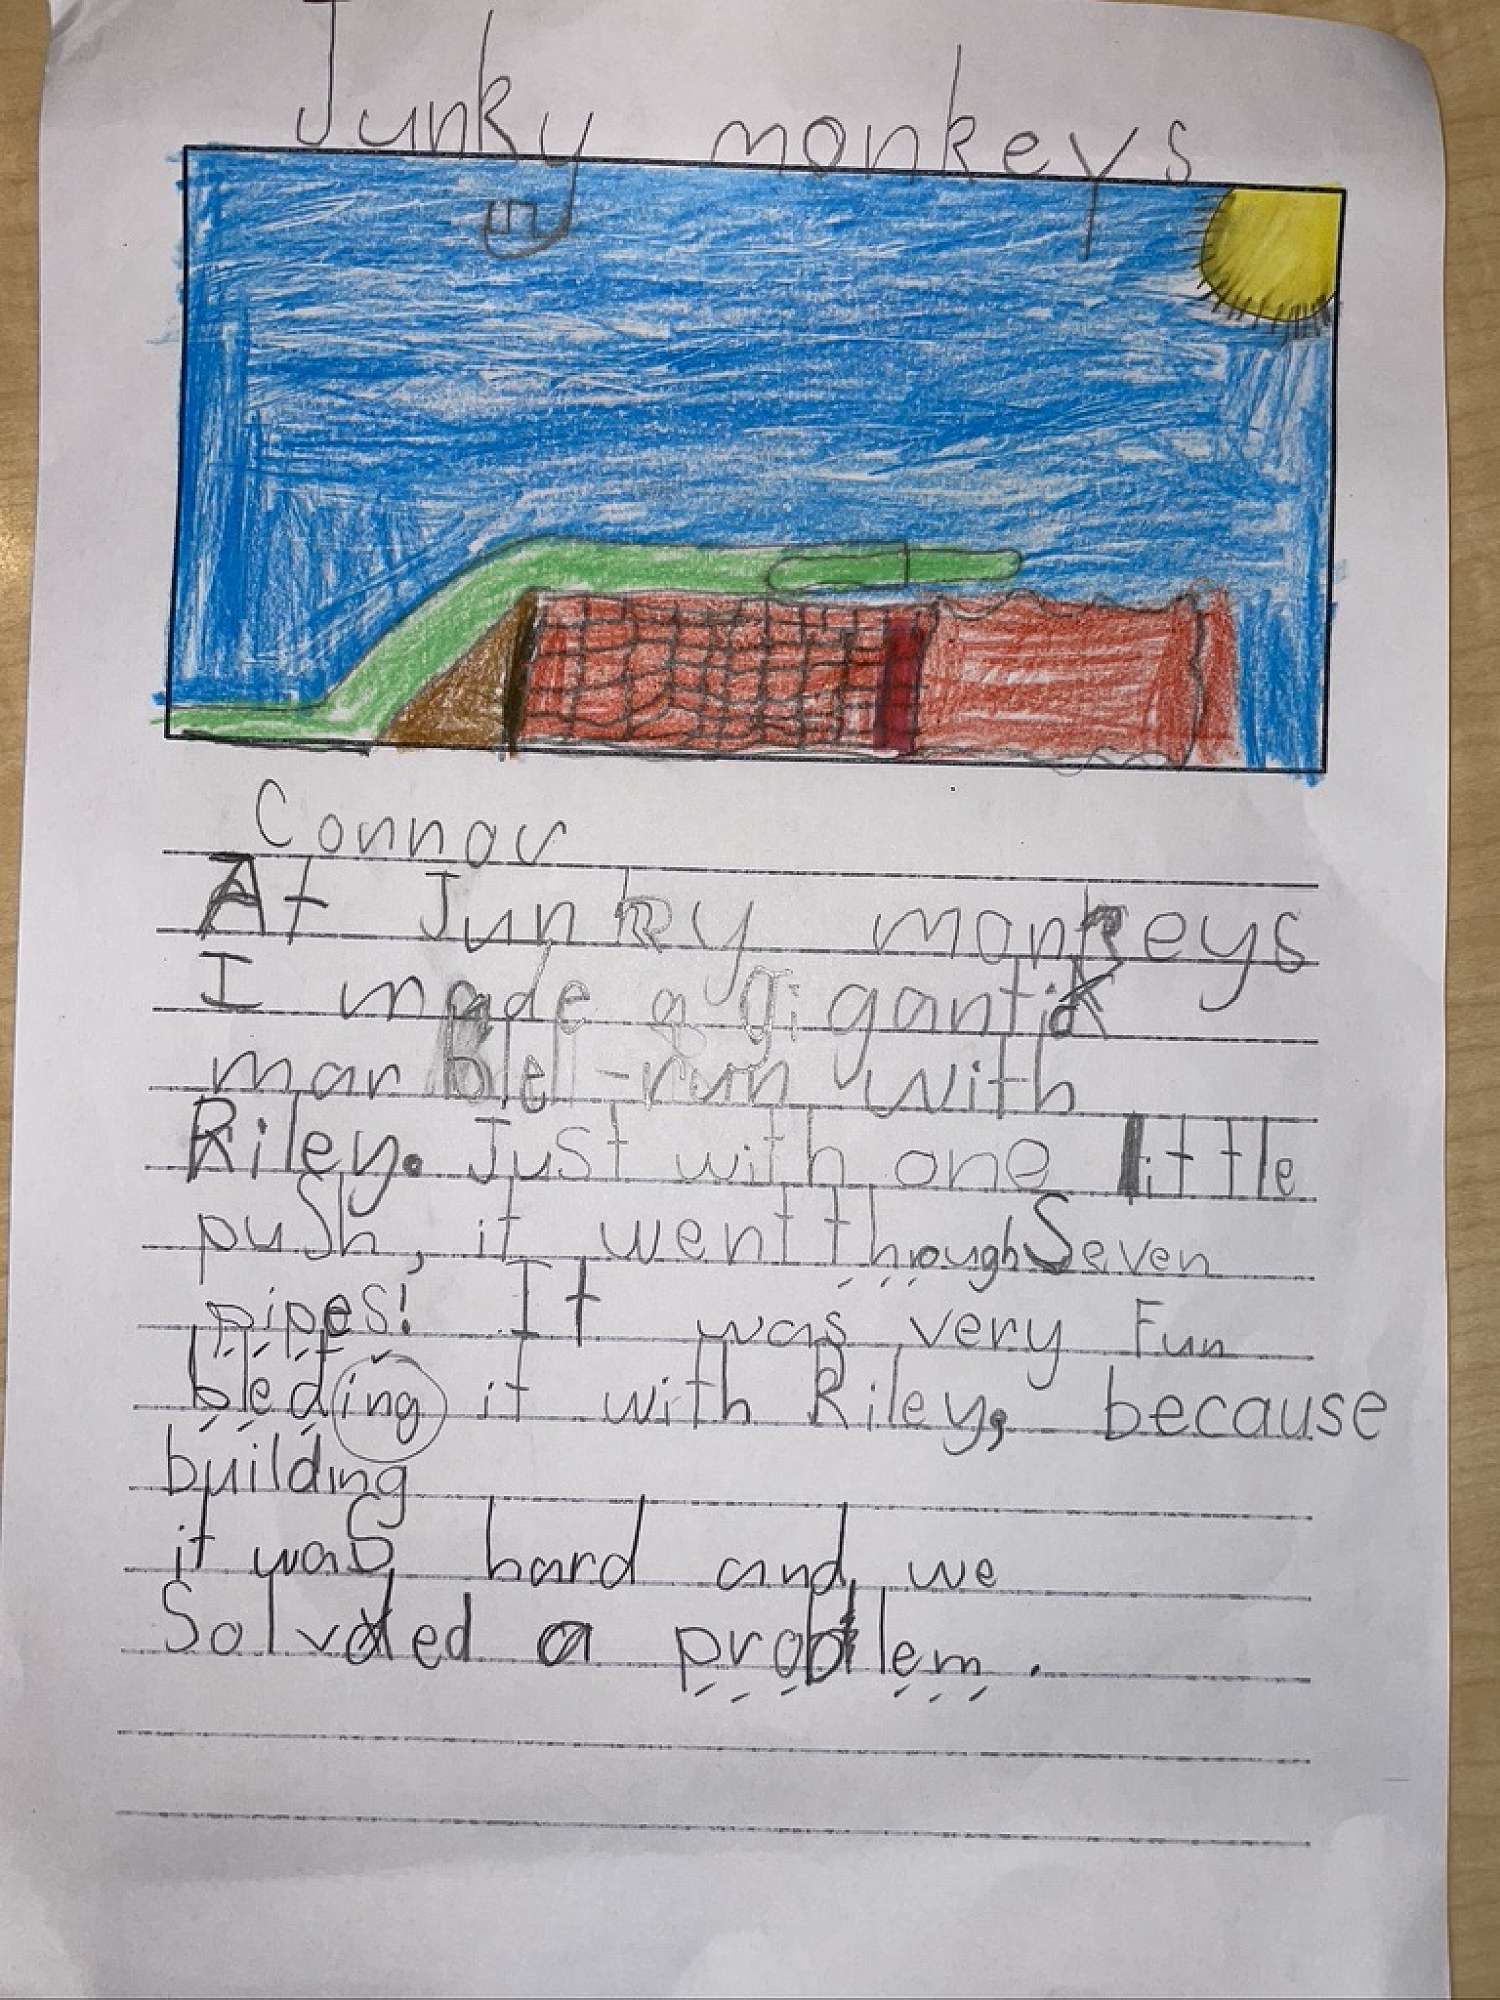 Junky monkeys
Connor
At Junky monkeys
I made a gigantik
marbel-run with
Riley. Just with one little
push, it went through Seven
pipes! It was very Fun
bleding it with Riley, because
building
it was hard and we
Solvded a problem.